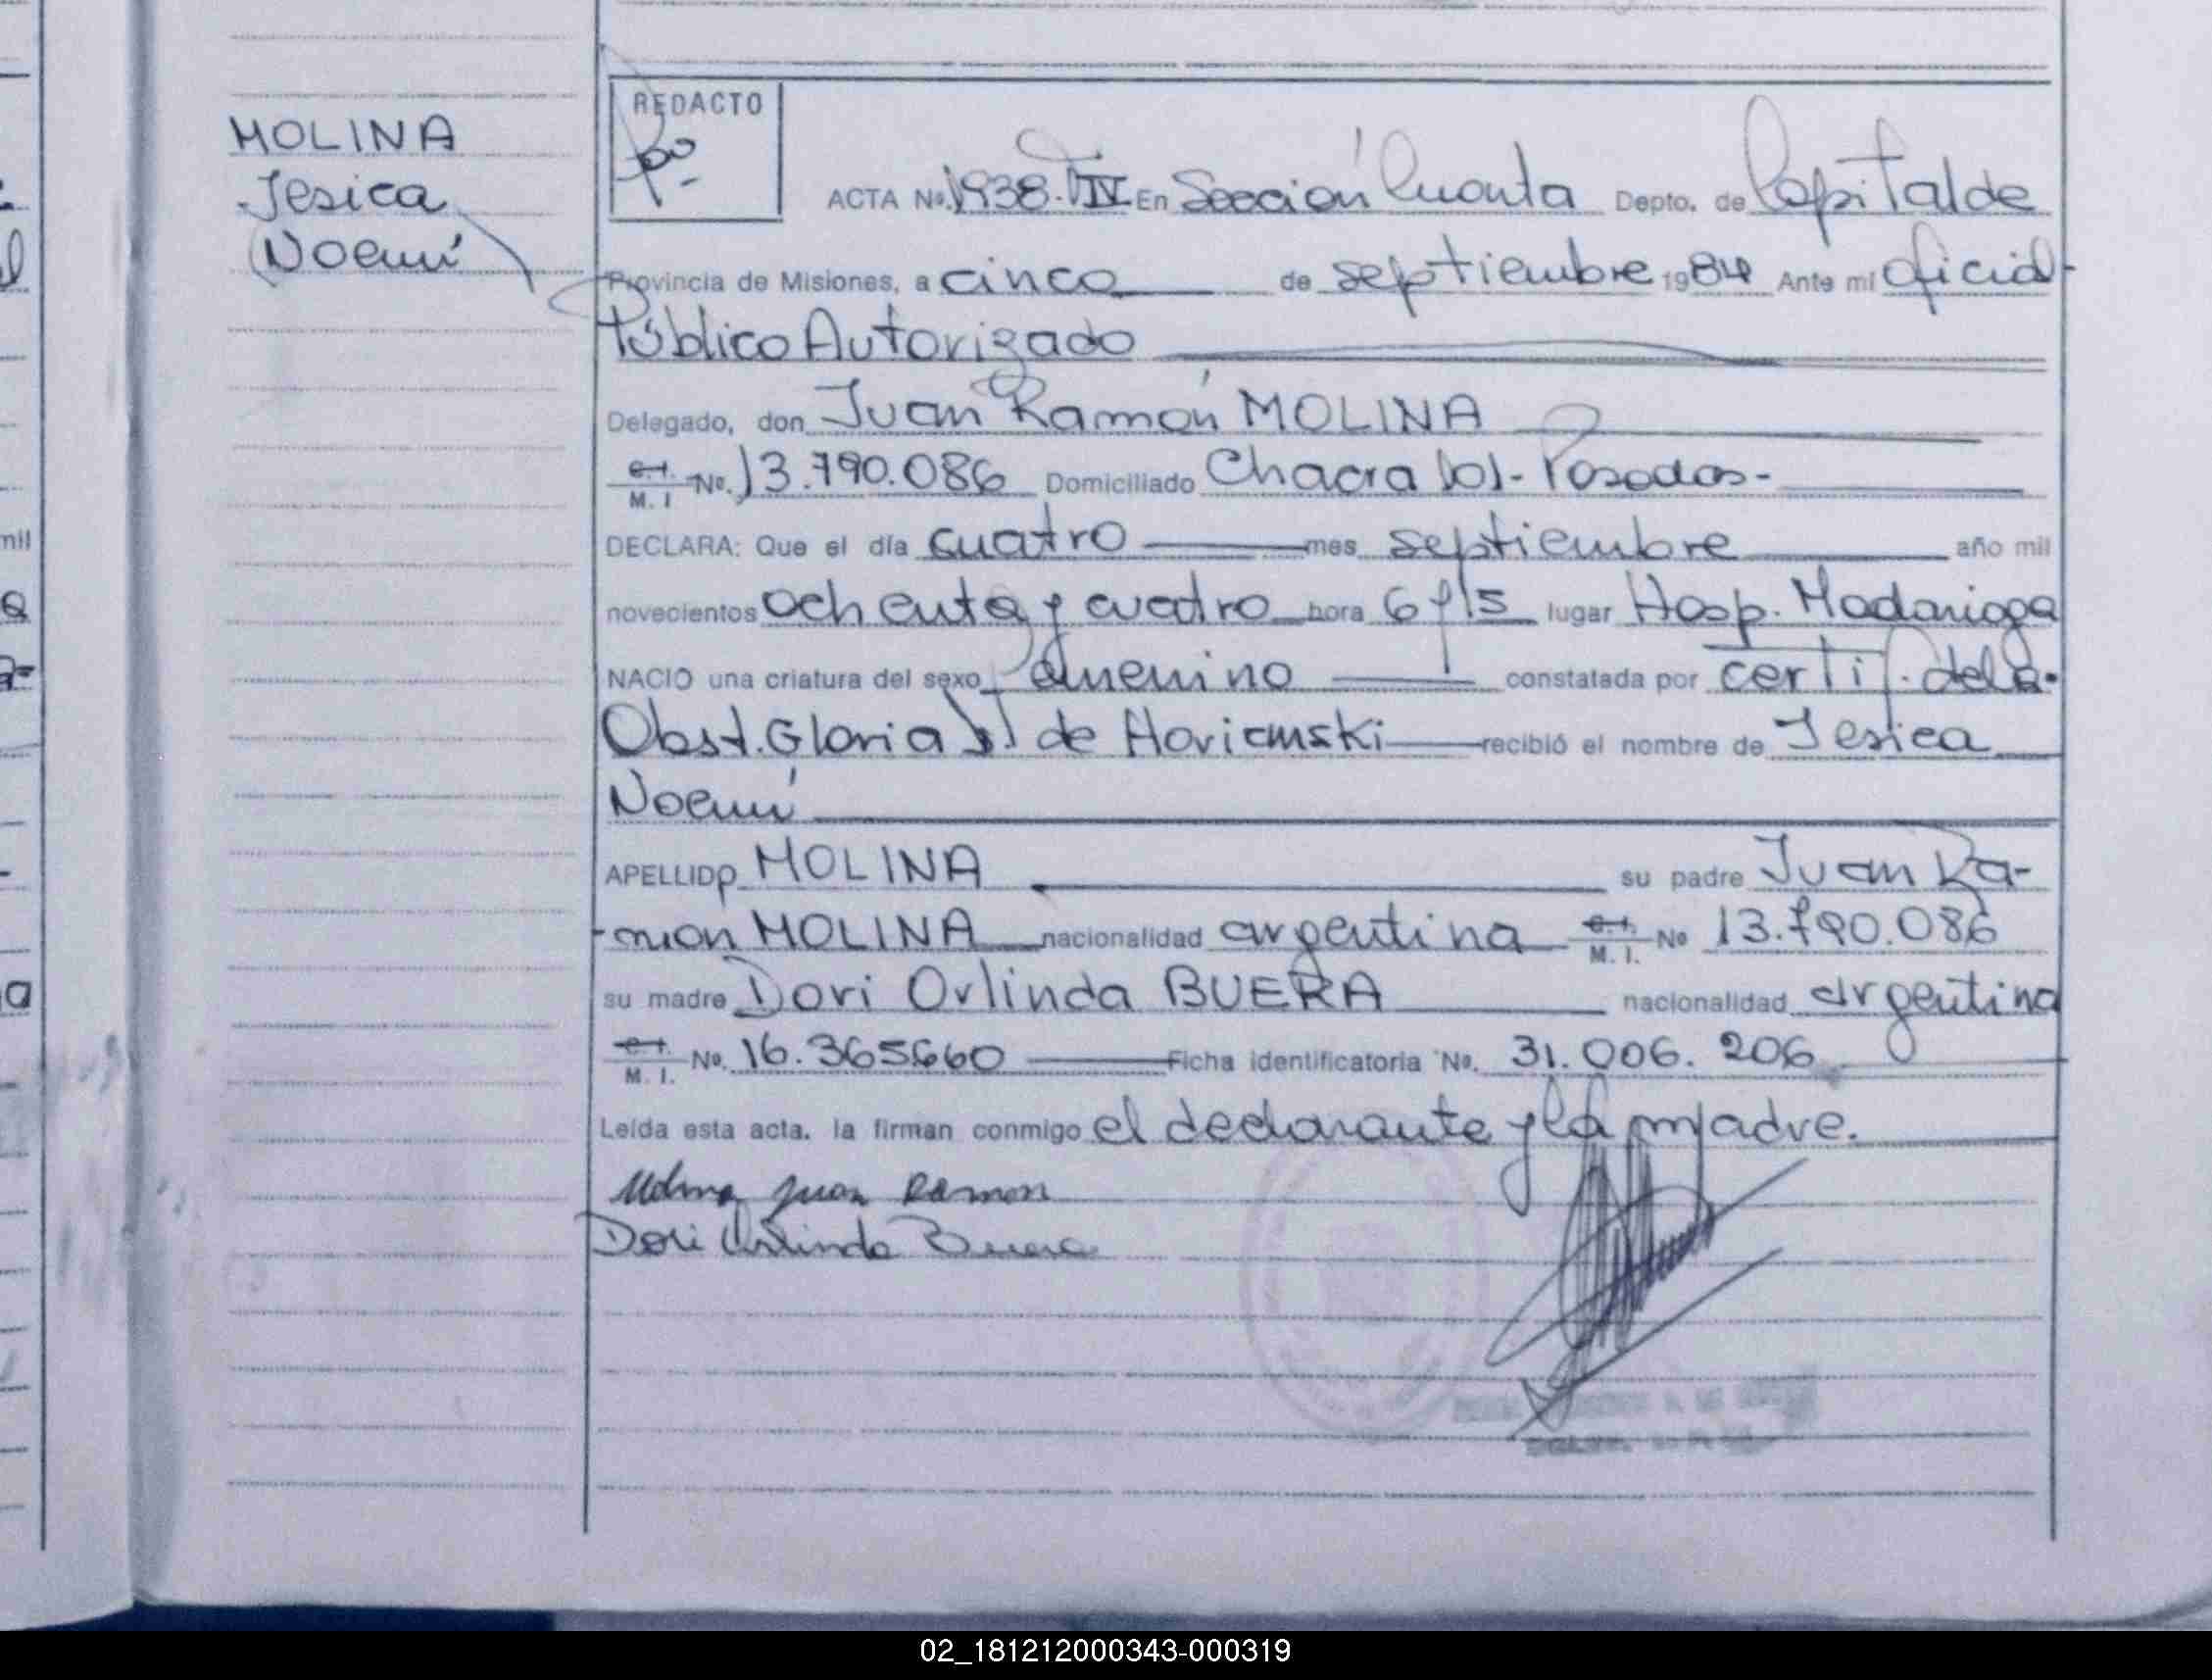 MOLINA
Jesica
Noemí
REDACTO
ACTA Nº 1938. T IV En Sección Cuarta Depto. de Capital de
Provincia de Misiones, a cinco de septiembre 1984 Ante mi oficial
Público Autorizado
Delegado, don Juan Ramón MOLINA
C.I. M. I Nº. 13.790.086 Domiciliado Chacra 101 - Posadas -
DECLARA: Que el día cuatro mes septiembre año mil
novecientos ochenta y cuatro hora 6 y 15 lugar Hosp. Madariaga
NACIO una criatura del sexo femenino constatada por certif. de la
Obst. Gloria de Horiamski recibió el nombre de Jesica
Noemí
APELLIDO MOLINA su padre Juan Ra-
-món MOLINA nacionalidad argentina C.I. M. I. Nº 13.790.086
su madre Dori Orlinda BUERA nacionalidad argentina
C.I. M. I. Nº. 16.365.660 Ficha identificatoria Nº. 31.006.206
Leída esta acta. la firman conmigo el declarante y la madre.
Molina Juan Ramon
Dori Orlinda Buera
mil
02_181212000343-000319